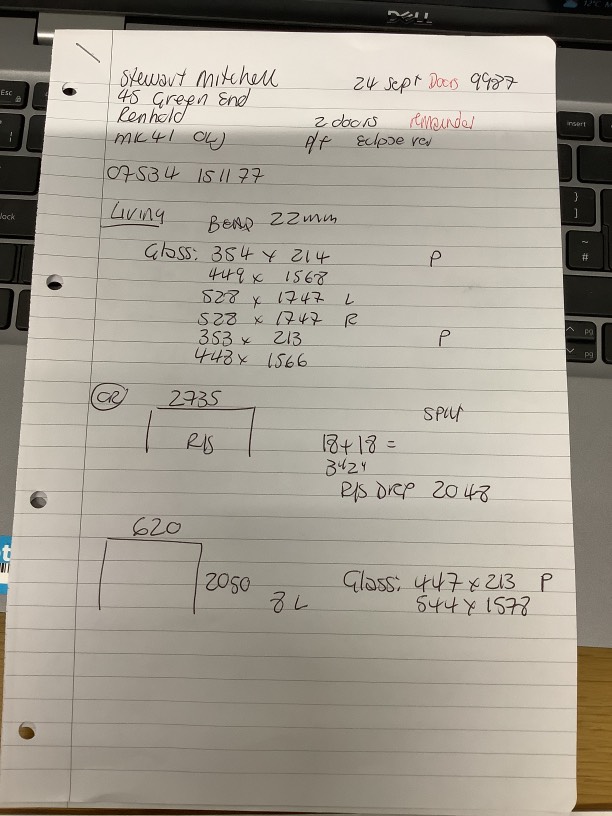 DELL
Stewart Mitchell 24 Sept Doors 9987
45 Green End
Renhold 2 doors remainder
MK41 P/f Eclipse rev
07534 151177
Living BEAD 22mm
Glass: 354 x 214 P
449 x 1568
528 x 1747 L
528 x 1747 R
353 x 213 P
448 x 1566
OR 2735
R/S 18+18 =
R/S Drop 2048
620
2050 Glass: 447 x 213 P
544 x 1578
Esc
lock
insert
}
]
~
#
PG
PG